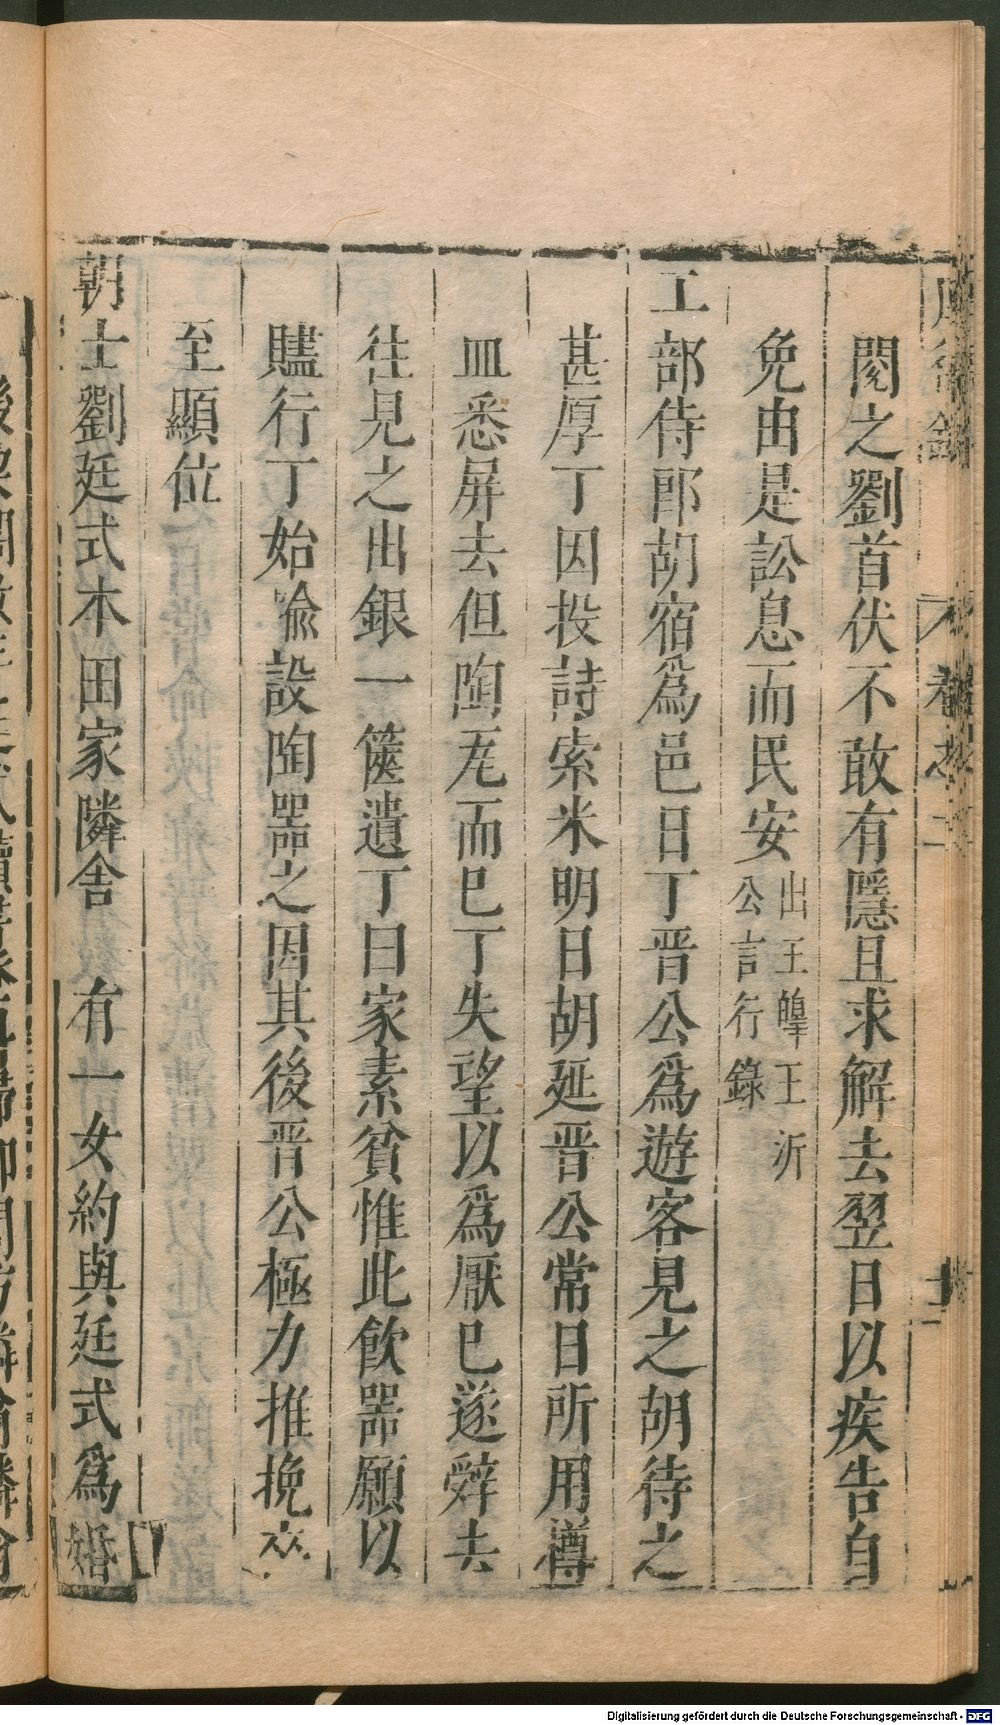 厚德錄 卷之二 十二
閱之劉首伏不敢有隱且求解去翌日以疾告自
免由是訟息而民安出王皥王沂
公言行錄
工部侍郎胡宿爲邑日丁晋公爲遊客見之胡待之
甚厚丁因投詩索米明日胡延晋公常日所用樽
皿悉屏去但陶㼚而已丁失望以爲厭已遂辤去
徃見之出銀一篋遺丁曰家素貧惟此飮噐願以
贐行丁始喻設陶噐之因其後晋公極力推挽𠂹
至顯位
朝士劉廷式本田家隣舍 有一女約與廷式爲婚
Digitalisierung gefördert durch die Deutsche Forschungsgemeinschaft - DFG